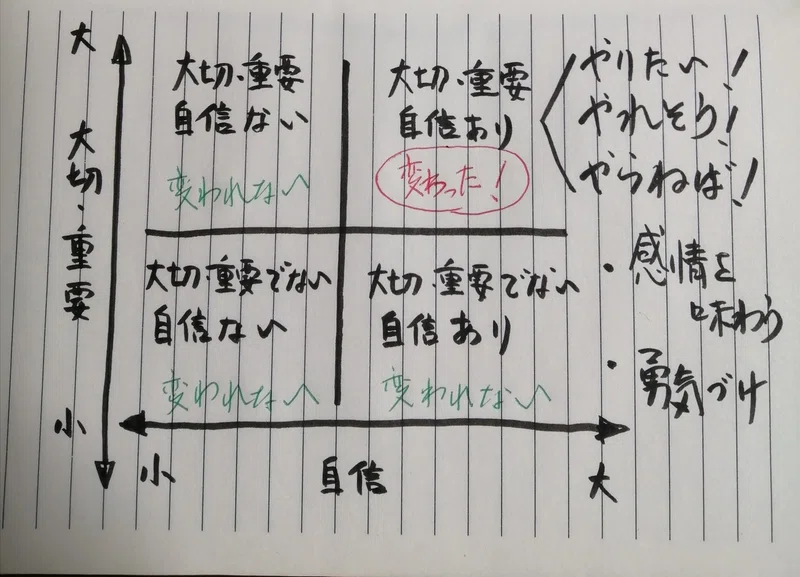 大
大切・重要
小
大切・重要
自信ない
変われない
大切・重要
自信あり
変わった!
大切・重要でない
自信ない
変われない
大切・重要でない
自信あり
変われない
小
自信
大
やりたい!
やれそう!
やらねば!
・感情を
味わう
・勇気づけ